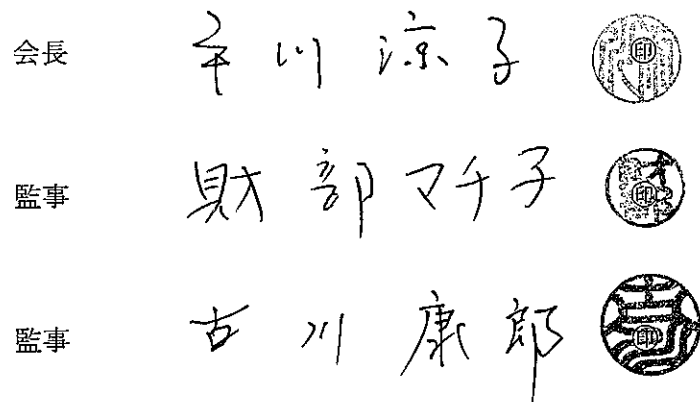 会長 市川涼子 印
監事 財部マチ子 印
監事 古川康郎 印